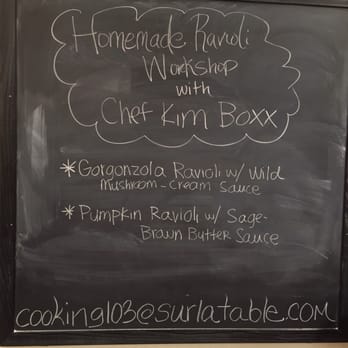 Homemade Ravioli
Workshop
with
Chef Kim Boxx
* Gorgonzola Ravioli w/ Wild
Mushroom-Cream Sauce
* Pumpkin Ravioli w/ Sage-
Brown Butter Sauce
cooking103@surlatable.com